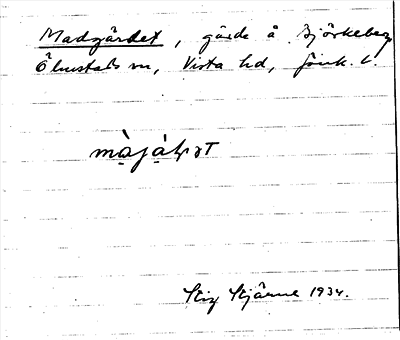 Madgärdet, gärde å Björkeberg
Ölmstads sn, Vista hd, Jönk. l.
Stig Stjärne 1934.